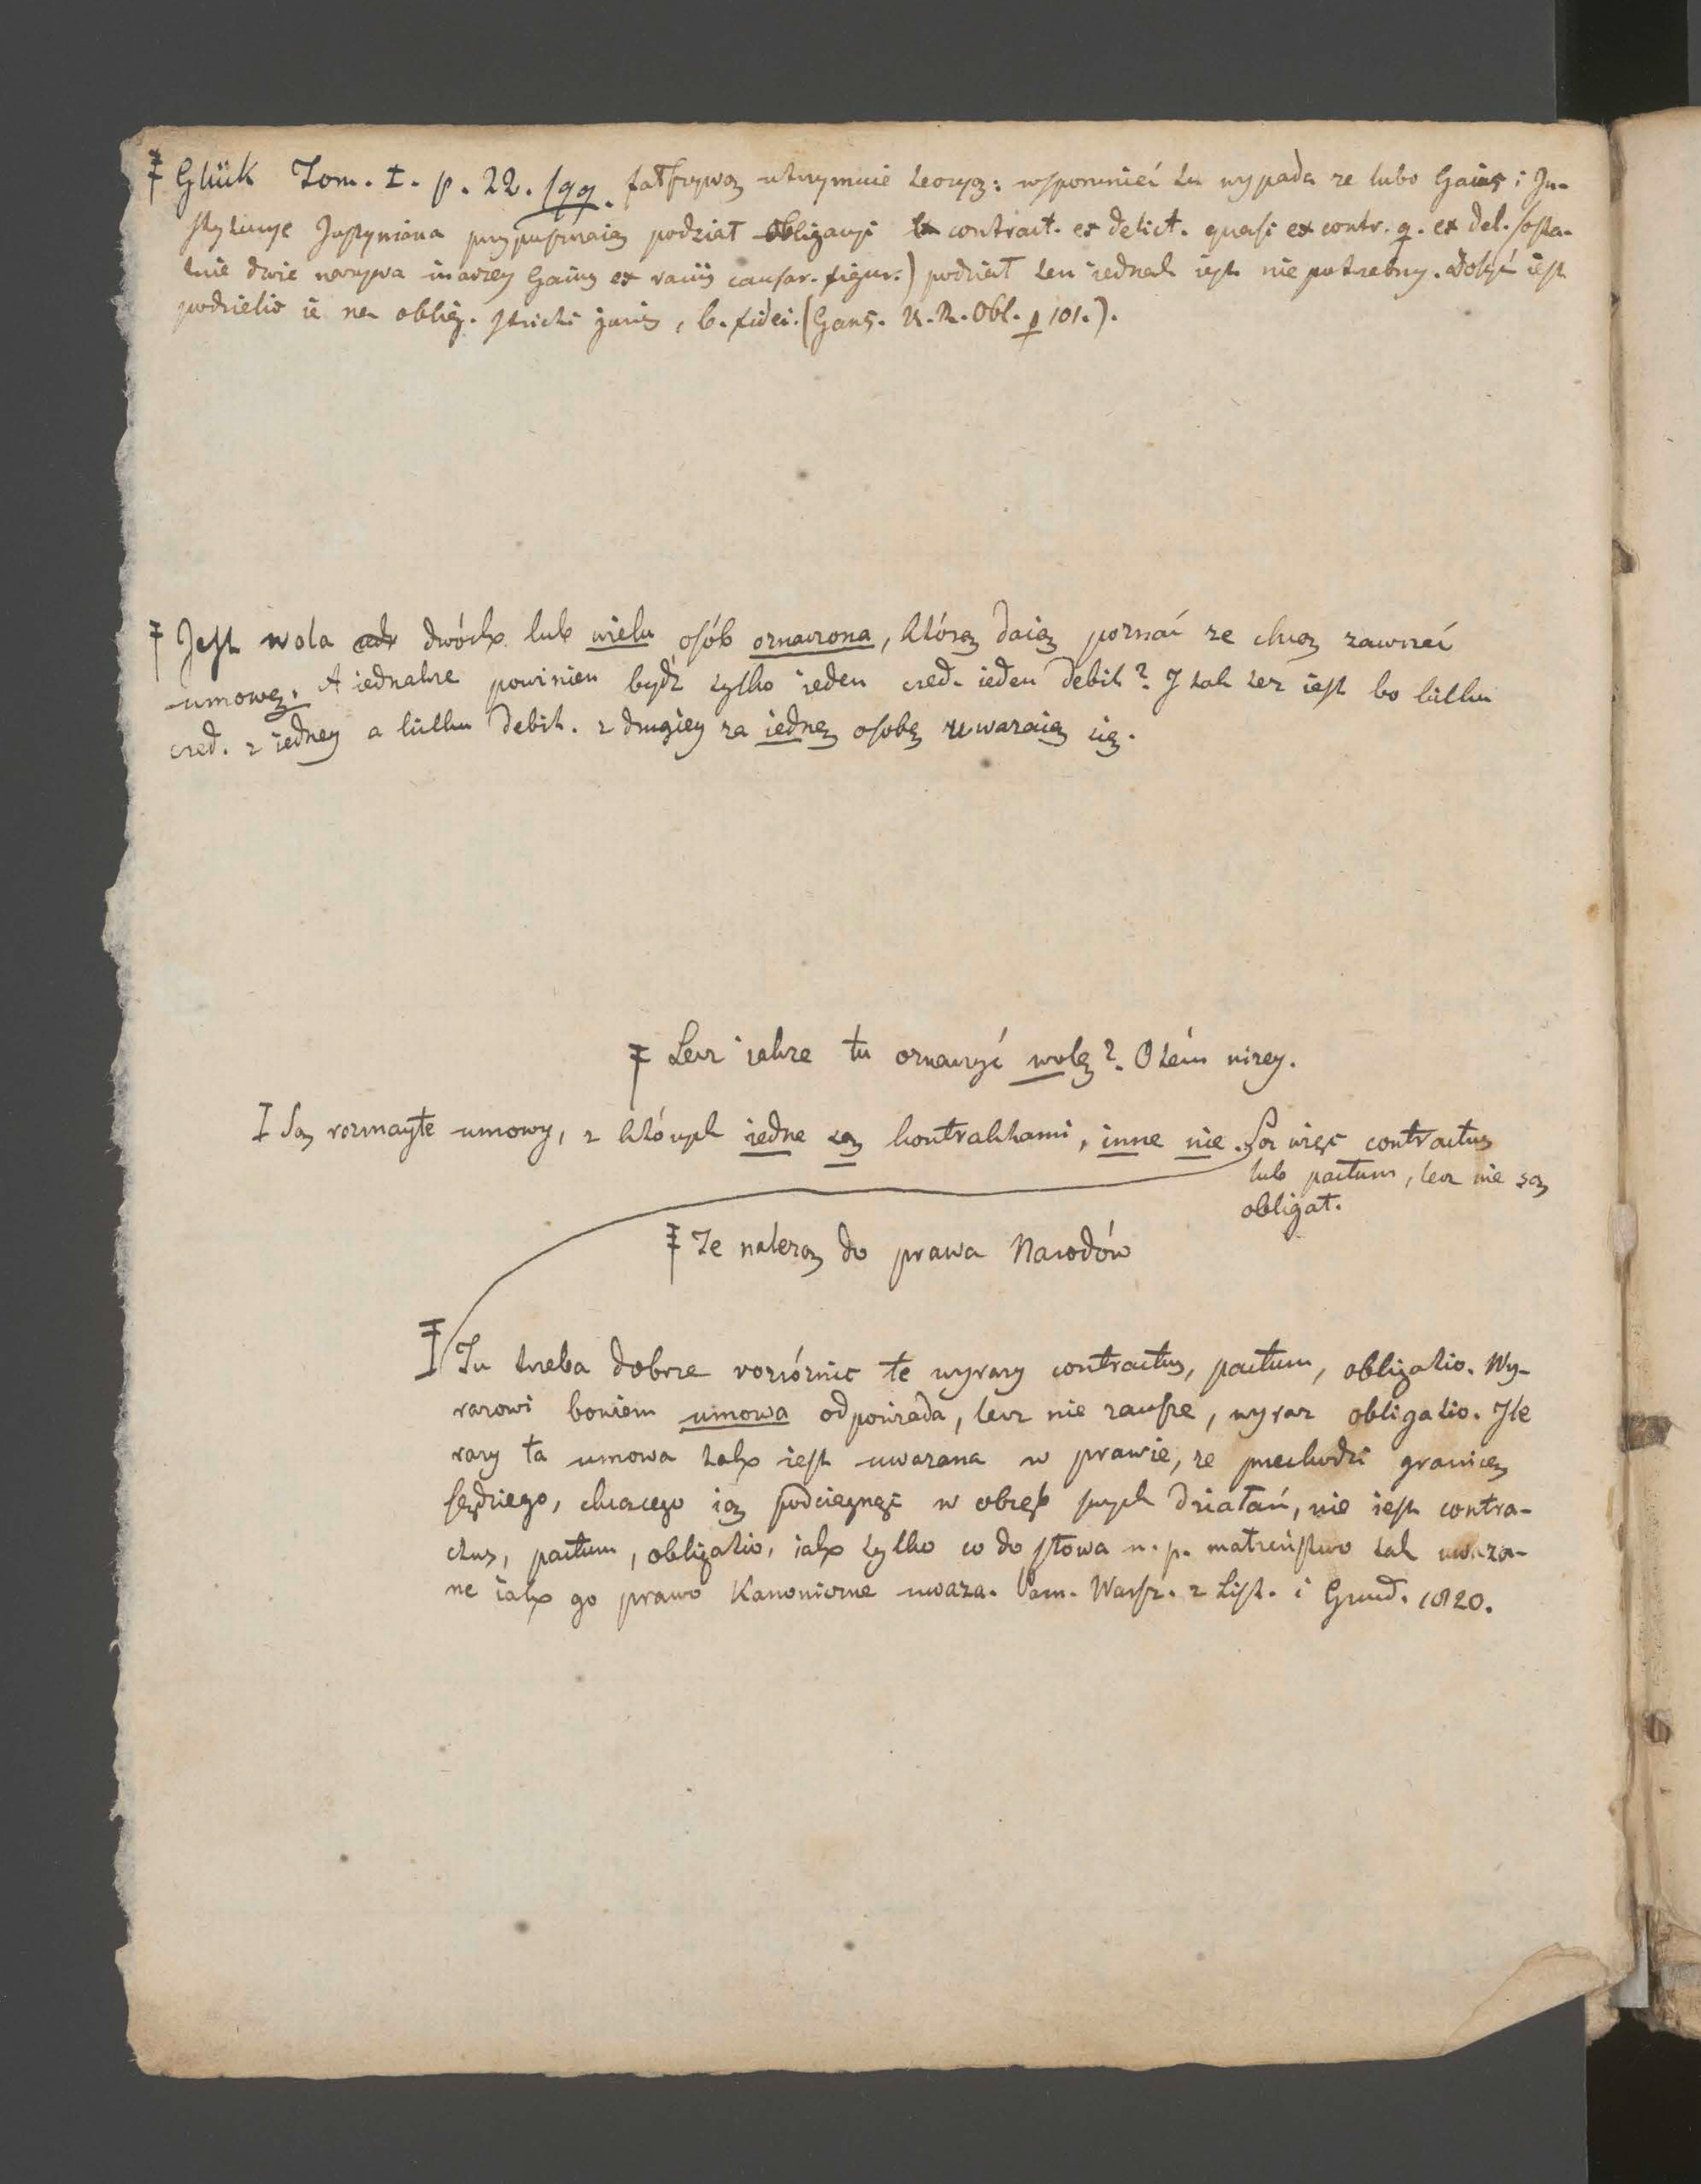 Glük Tom. I. p. 22. sqq. fałszywą utrzymuie teoryą: wspomnieć tu wypada ze lubo Gaius i In-
stytucye Justyniana przypuszczaią podział obligacyi ex contract. ex delict. quasi ex contr. q. ex del. (osta-
tnie dwie nazywa inaczey Gaius ex variis causar. figur.) podział ten iednak iest nie potrzebny. Dosyć iest
podzielić ie na oblig. stricti juris, b. fidei. (Gans. U. R. Obl. p 101.).
Jest wola dwóch lub wielu osób oznaczona, którą daią poznać ze chcą zawrzeć
umowę. A iednakze powinien bydź tylko ieden cred. ieden debit? I tak tez iest bo kilku
cred. z iedney a kilku debit. z drugiey za iednę osobę uwazaią się.
Lecz iakze tu oznaczyć wolę? O tém nizey.
Są rozmayte umowy, z których iedne są kontraktami, inne nie. Są więc contractus
lub pactum, lecz nie są
obligat.
Te nalezą do prawa Narodów
Tu trzeba dobrze rozróznić te wyrazy contractus, pactum, obligatio. Wy-
razowi bowiem umowa odpowiada, lecz nie zawsze, wyraz obligatio. Ile
razy ta umowa tak iest uwazana w prawie, ze przechodzi granicę
sędziego, chcącego ią podciągnąć w obręb swych działań, nie iest contra-
ctus, pactum, obligatio, iak tylko co do słowa n. p. małzeństwo tak uwaza-
ne iak go prawo Kanoniczne uwaza. Pam. Warsz. z List. i Grud. 1820.